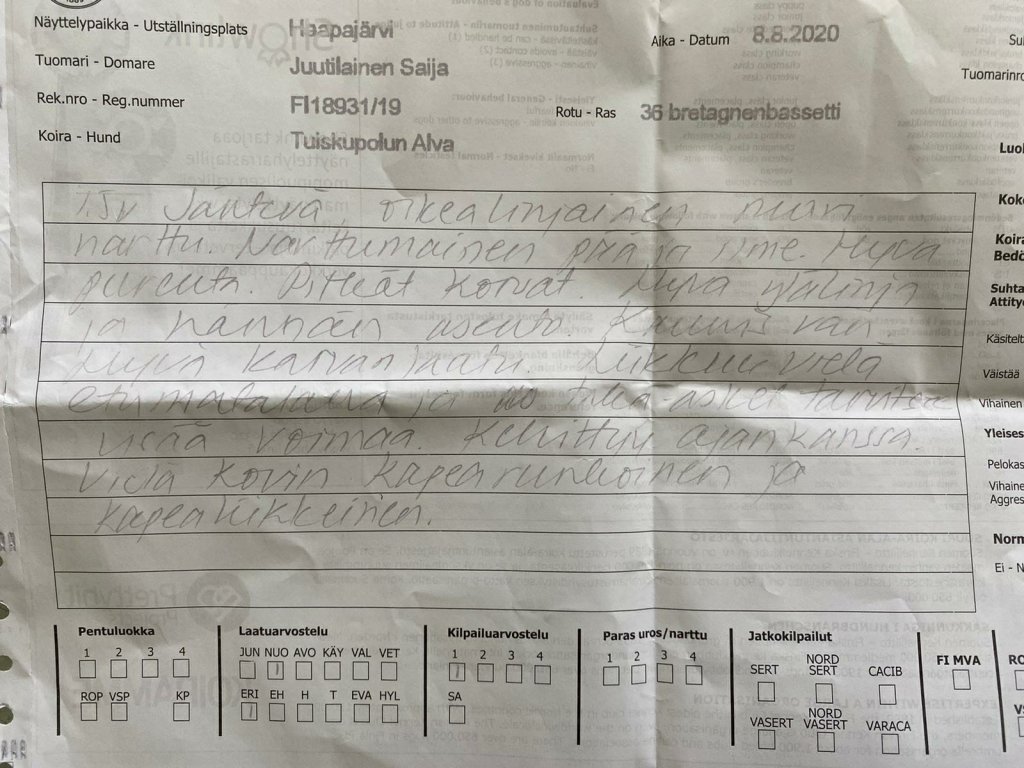 Näyttelypaikka - Utställningsplats Haapajärvi Aika - Datum 8.8.2020
Tuomari - Domare Juutilainen Saija Tuomarinro
Rek.nro - Reg.nummer FI18931/19 Rotu - Ras 36 bretagnenbassetti
Koira - Hund Tuiskupolun Alva
Jäntevä, oikealinjainen nuori
narttu. Narttumainen pää ja ilme. Hyvä
purenta. Pitkät korvat. Hyvä ylälinja
ja hännän asento. Kaunis väri
Hyvin karvan laatu. Liikkuu vielä
etumatalana ja taka-askel tarvitsee
lisää voimaa. Kehittyy ajan kanssa.
Vielä kovin kapearunkoinen ja
kapealiikkeinen.
Koira
Bedö
Suhta
Attityd
Käsitelt
Väistää
Vihainen
Yleises
Pelokas
Vihaine
Aggres
Norm
Ei - N
Pentuluokka Laatuarvostelu Kilpailuarvostelu Paras uros/narttu Jatkokilpailut
1 2 3 4 JUN NUO AVO KÄY VAL VET 1 2 3 4 1 2 3 4 SERT NORD SERT CACIB FI MVA
ROP VSP KP ERI EH H T EVA HYL SA VASERT NORD VASERT VARACA